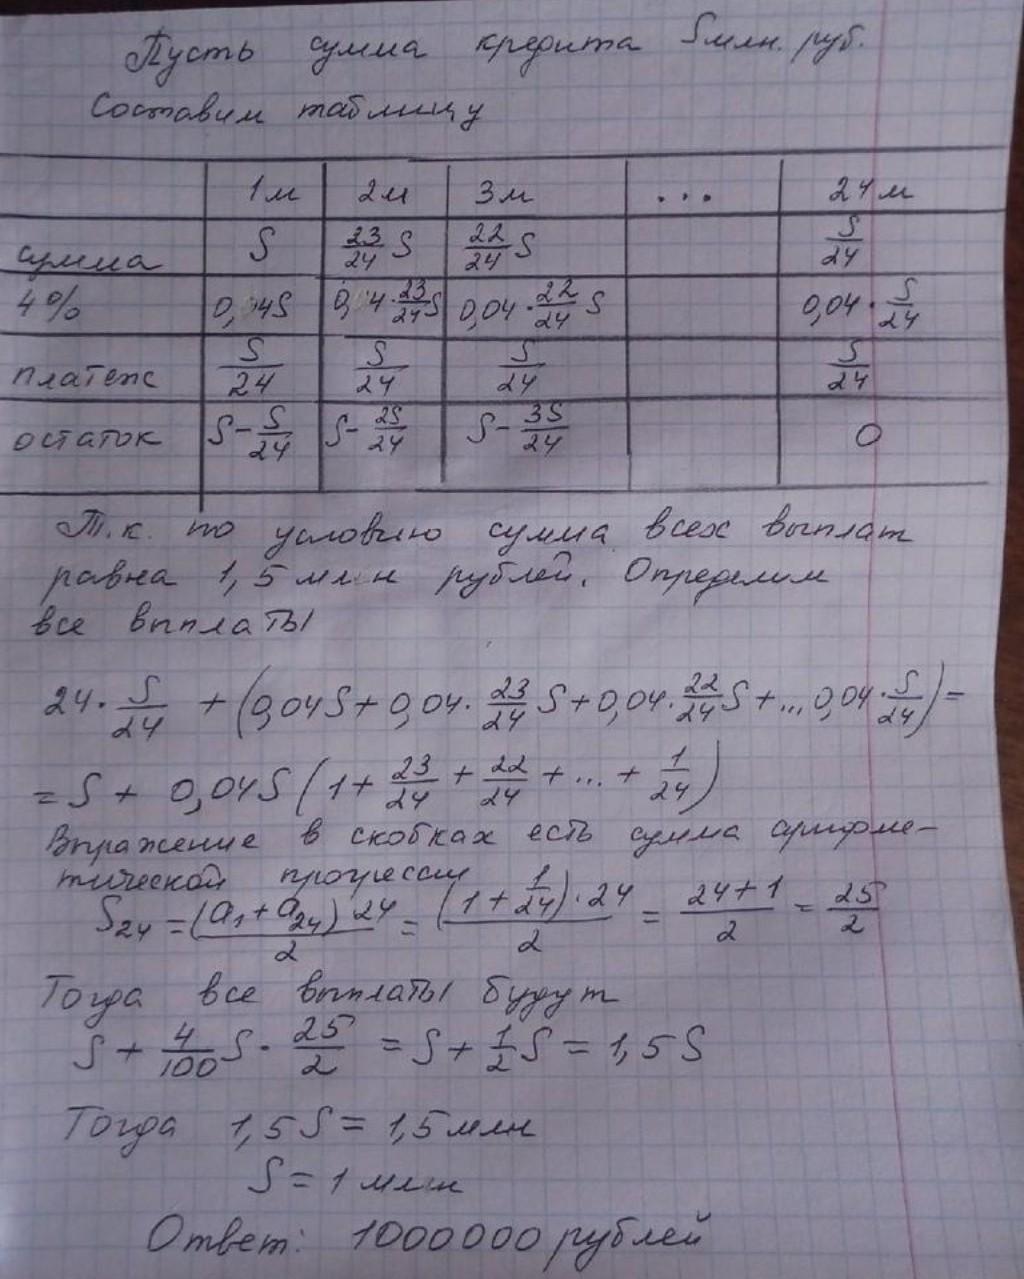 Пусть сумма кредита S млн. руб.
Составим таблицу
1м 2м 3м ... 24м
сумма S 23/24 S 22/24 S S/24
4% 0,04S 0,04·23/24 S 0,04·22/24 S 0,04·S/24
платеж S/24 S/24 S/24 S/24
остаток S-S/24 S-2S/24 S-3S/24 0
Т.к. по условию сумма всех выплат
равна 1,5 млн рублей. Определим
все выплаты
24·S/24 + (0,04S+0,04·23/24 S+0,04·22/24 S+...0,04·S/24)=
=S + 0,04S(1+23/24+22/24+...+1/24)
Выражение в скобках есть сумма арифме-
тической прогрессии
S24=(a1+a24)·24/2=(1+1/24)·24/2=24+1/2=25/2
Тогда все выплаты будут
S+4/100 S·25/2=S+1/2 S=1,5S
Тогда 1,5S=1,5 млн
S=1 млн
Ответ: 1000000 рублей